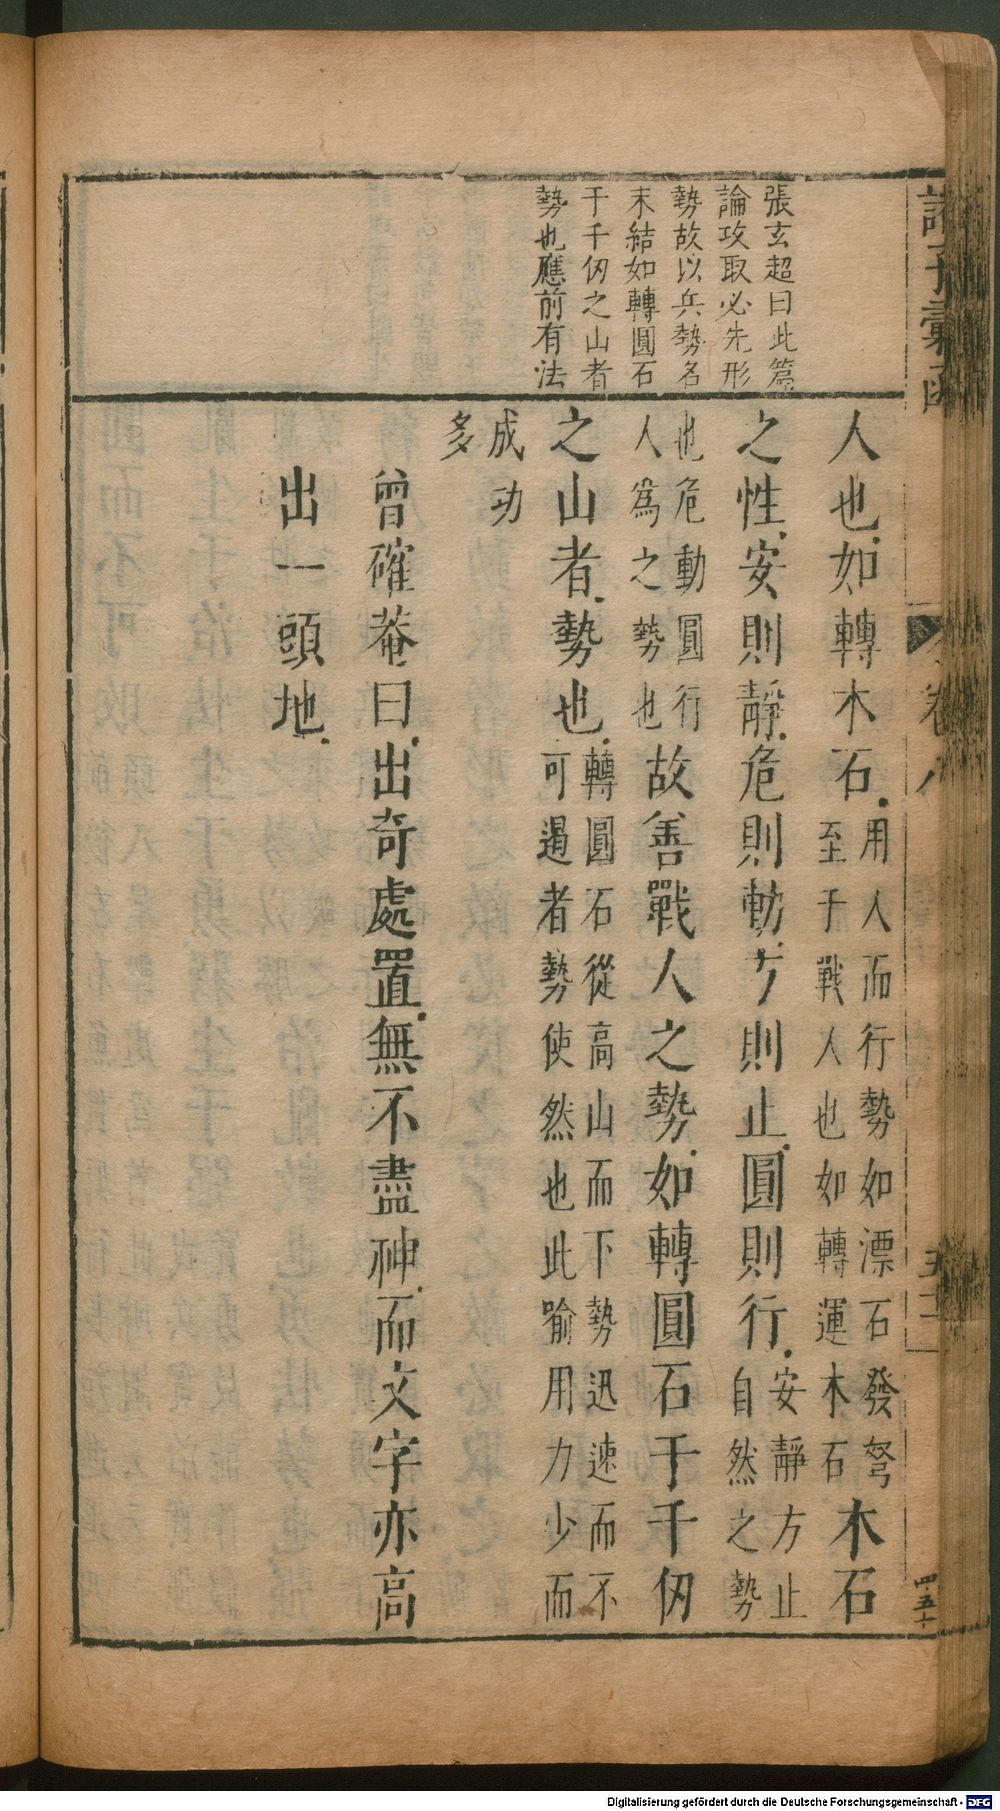 張玄超曰此篇
論攻取必先形
勢故以兵勢名
末結如轉圓石
于千仞之山者
勢也應前有法
人也如轉木石用人而行勢如漂石發弩至于戰人也如轉運木石木石
之性安則靜危則動方則止圓則行安靜方止自然之勢
也危動圓行人為之勢也故善戰人之勢如轉圓石于千仞
之山者勢也轉圓石從高山而下勢迅速而不可遏者勢使然也此喻用力少而
成功多
曾確菴曰出奇處置無不盡神而文字亦高
出一頭地
卷八
四五十
Digitalisierung gefördert durch die Deutsche Forschungsgemeinschaft - DFG